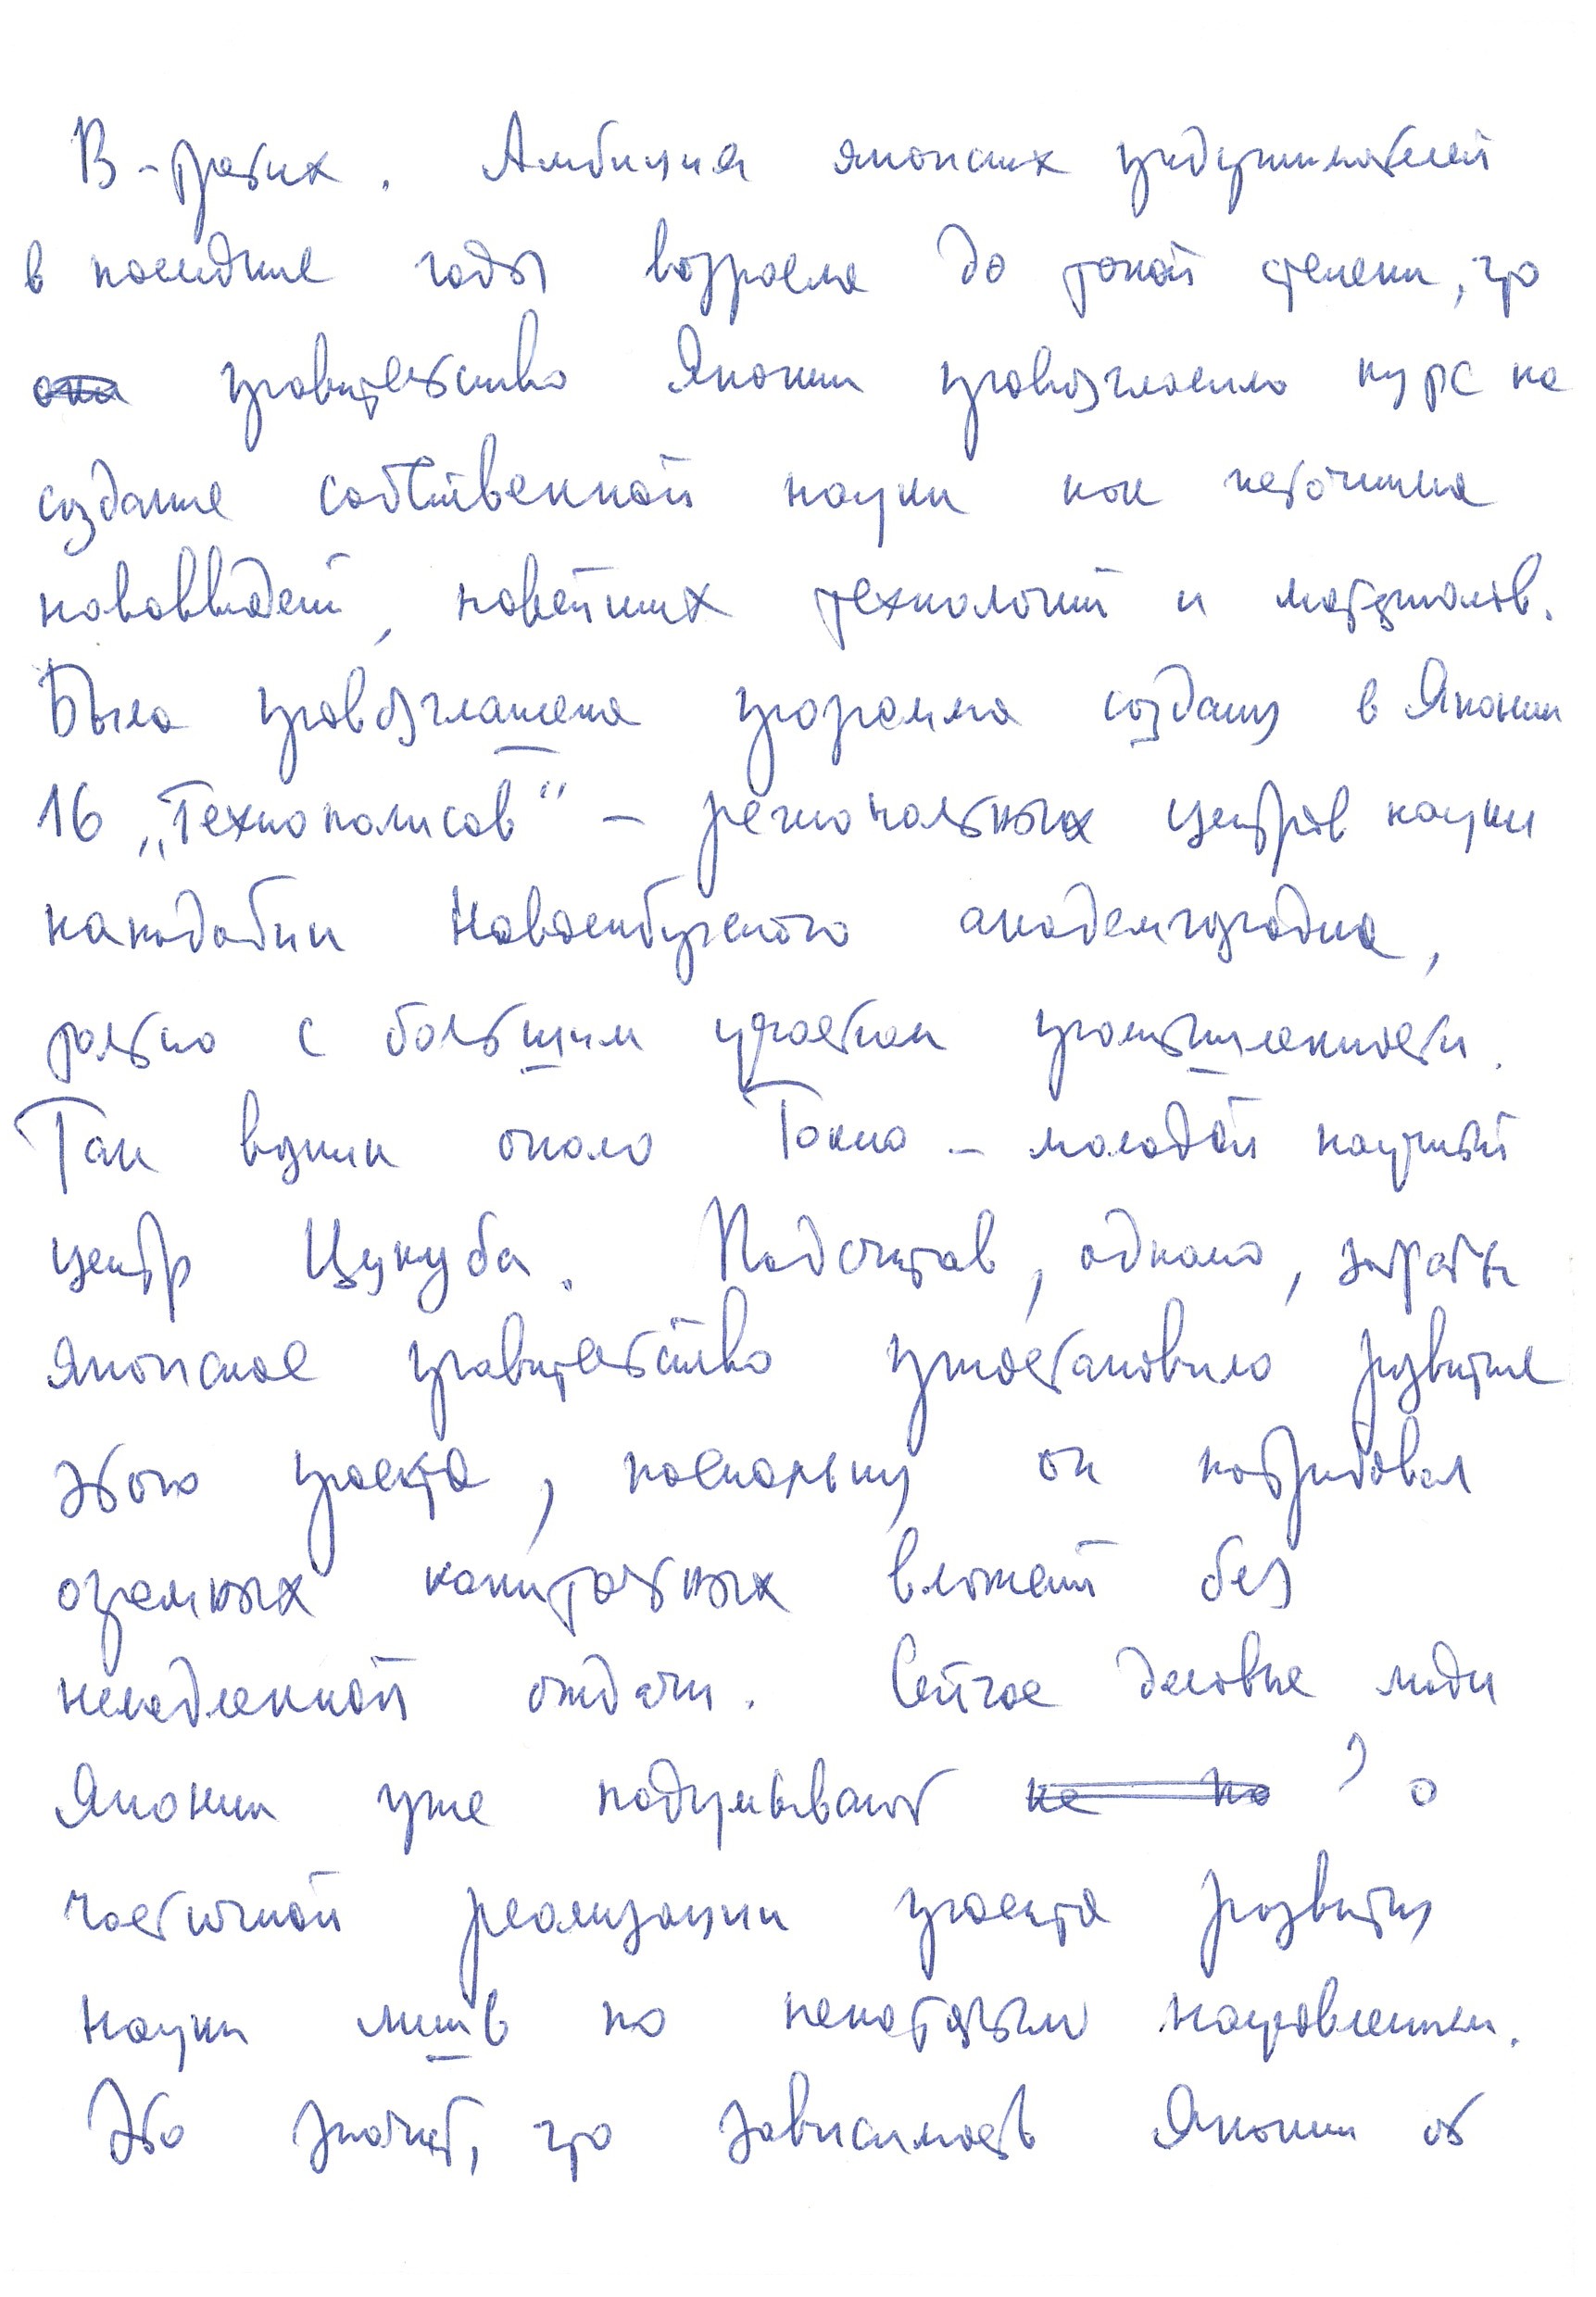 В-третих. Амбиция японских предпринимателей
в последние годы возросла до такой степени, что
они правительство Японии провозгласило курс на
создание собственной науки как источника
нововведений, новейших технологий и материалов.
Была провозглашена программа создания в Японии
16 „Технополисов“ – региональных центров науки
наподобии Новосибирского академгородка,
только с большим участием промышленности.
Так возник около Токио – молодой научный
центр Цукуба. Подсчитав, однако, затраты
японское правительство приостановило развитие
этого проекта, поскольку он потребовал
огромных капитальных вложений без
немедленной отдачи. Сейчас деловые люди
Японии уже подумывают не по , о
частичной реализации проекта развития
науки лишь по некоторым направлениям.
Это значит, что зависимость Японии от